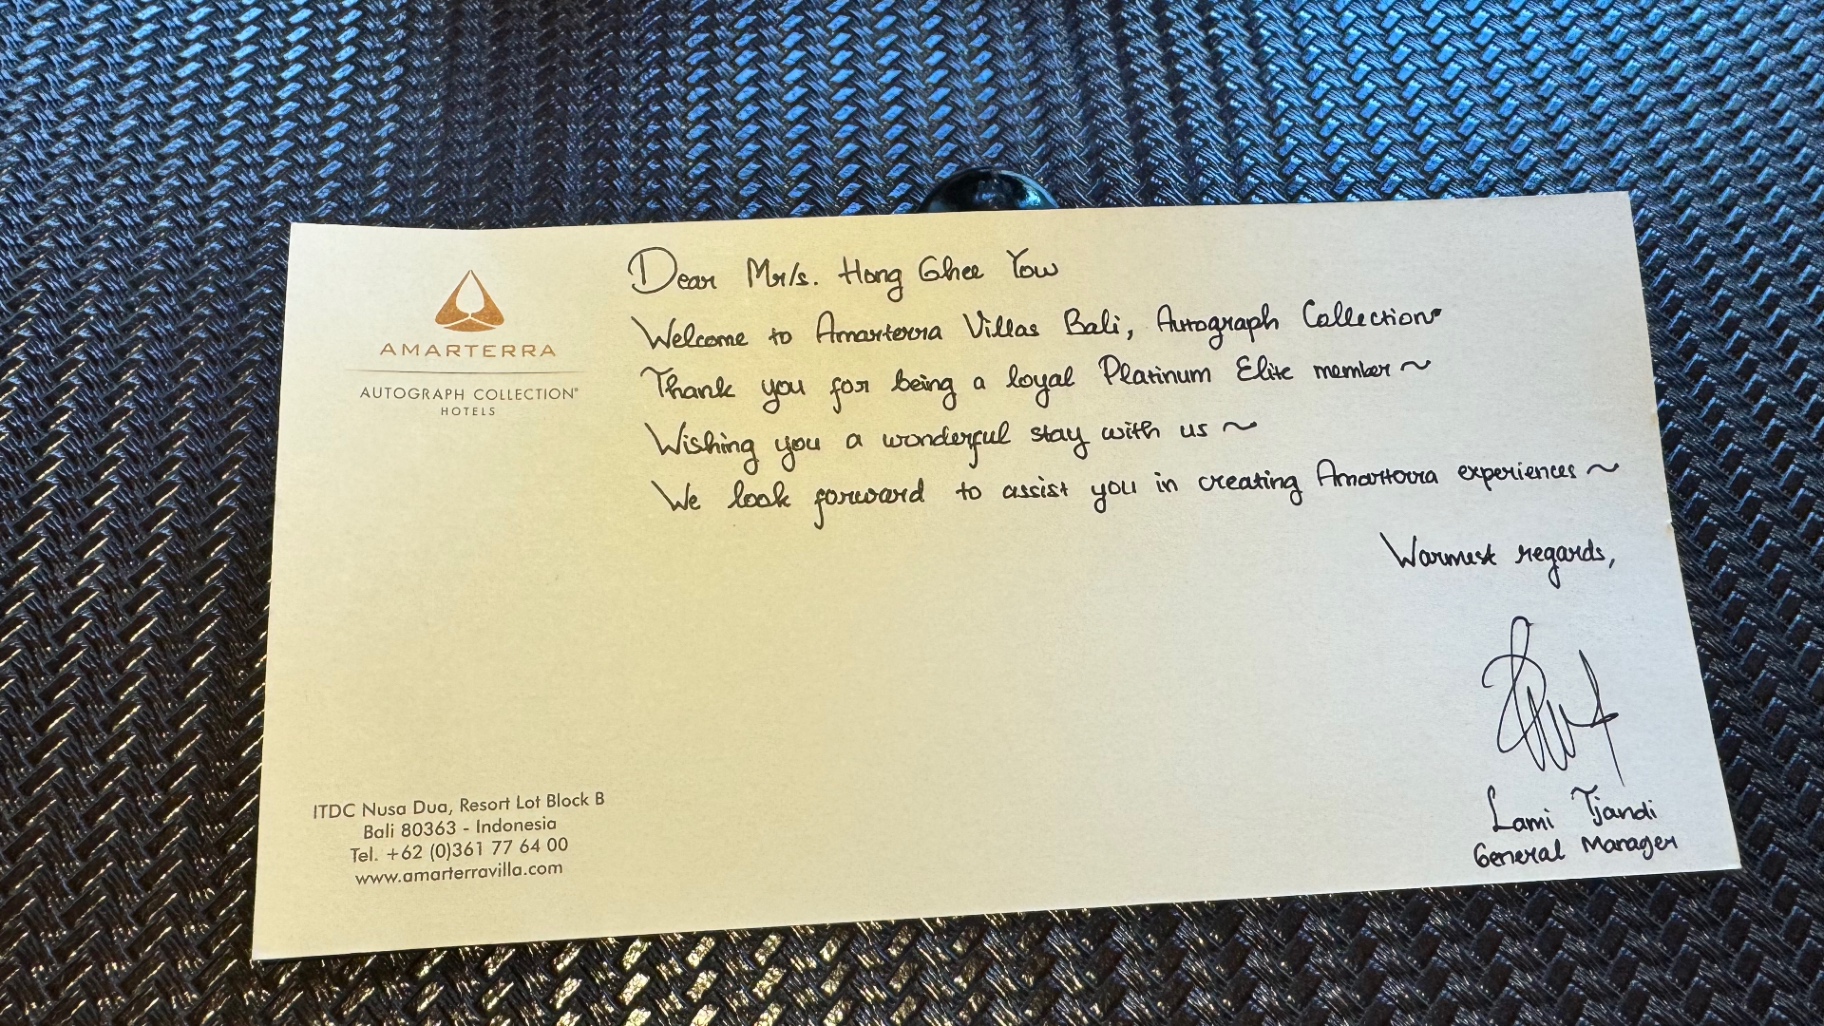 AMARTERRA
AUTOGRAPH COLLECTION®
HOTELS
Dear Mr/s. Hong Ghee Yow
Welcome to Amarterra Villas Bali, Autograph Collection®
Thank you for being a loyal Platinum Elite member ~
Wishing you a wonderful stay with us ~
We look forward to assist you in creating Amarterra experiences ~
Warmest regards,
Lami Tjandi
General Manager
ITDC Nusa Dua, Resort Lot Block B
Bali 80363 - Indonesia
Tel. +62 (0)361 77 64 00
www.amarterravilla.com